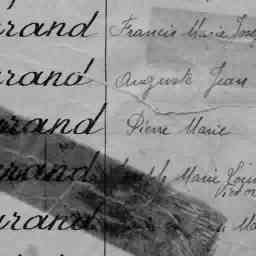 rand Francis Marie Jose
rand Auguste Jean
rand Pierre Marie
rand Marie Loui
rand Ma